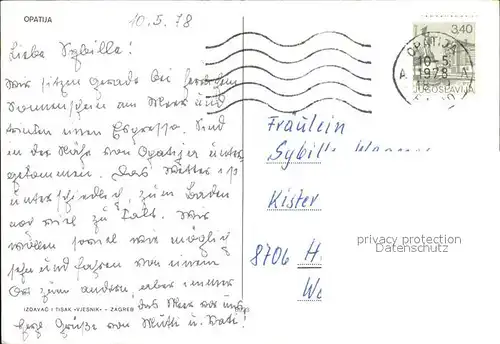 OPATIJA
10.5.78
Liebe Sybille!
Wir sitzen gerade bei herrlichem
Sonnenschein am Meer und
trinken einen Espresso. Sind
in der Nähe von Opatija unter-
gekommen. Das Wetter ist
unterschiedlich, zum Baden
noch viel zu kalt. Wir
wollen soviel wie möglich
sehn und fahren von einem
Ort zum andern, aber immer
das Meer vor uns
herzl. Grüße von Mutti u. Vati!
IZDAVAČ I TISAK »VJESNIK« — ZAGREB
3,40
OPATIJA
10-5
1978
A
JUGOSLAVIJA
Fräulein
Sybille
Kister
8706 H
We
privacy protection
Datenschutz